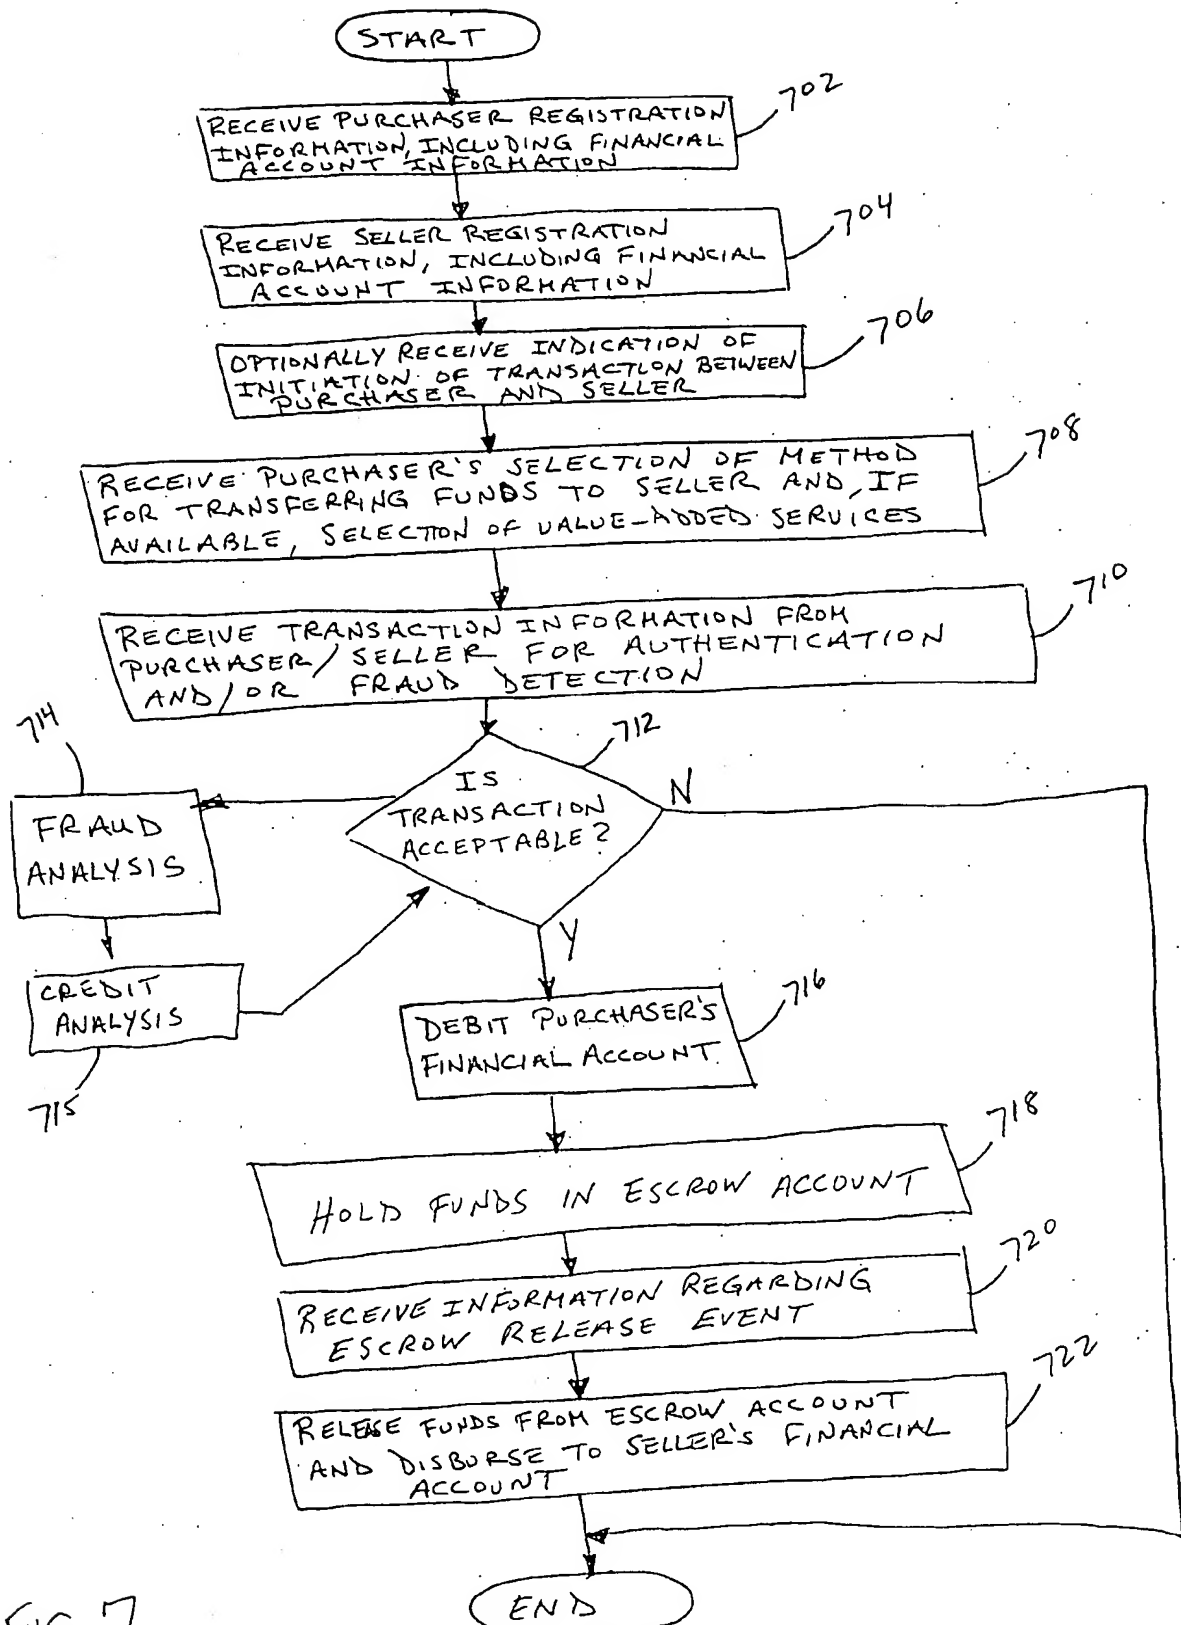 START
702
RECEIVE PURCHASER REGISTRATION
INFORMATION, INCLUDING FINANCIAL
ACCOUNT INFORMATION
704
RECEIVE SELLER REGISTRATION
INFORMATION, INCLUDING FINANCIAL
ACCOUNT INFORMATION
706
OPTIONALLY RECEIVE INDICATION OF
INITIATION OF TRANSACTION BETWEEN
PURCHASER AND SELLER
708
RECEIVE PURCHASER'S SELECTION OF METHOD
FOR TRANSFERRING FUNDS TO SELLER AND, IF
AVAILABLE, SELECTION OF VALUE-ADDED SERVICES
710
RECEIVE TRANSACTION INFORMATION FROM
PURCHASER/SELLER FOR AUTHENTICATION
AND/OR FRAUD DETECTION
712
IS
TRANSACTION
ACCEPTABLE?
N
714
FRAUD
ANALYSIS
CREDIT
ANALYSIS
715
Y
716
DEBIT PURCHASER'S
FINANCIAL ACCOUNT
718
HOLD FUNDS IN ESCROW ACCOUNT
720
RECEIVE INFORMATION REGARDING
ESCROW RELEASE EVENT
722
RELEASE FUNDS FROM ESCROW ACCOUNT
AND DISBURSE TO SELLER'S FINANCIAL
ACCOUNT
END
FIG. 7